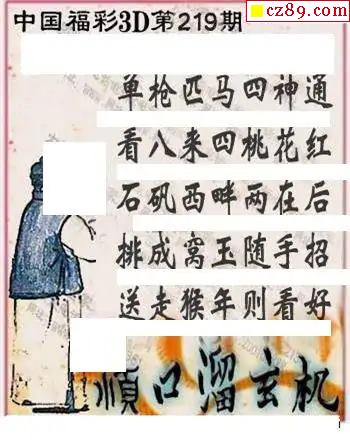 cz89.com
中国福彩3D第219期
单枪匹马四神通
看八来四桃花红
石矶西畔两在后
排成窝玉随手招
送走猴年则看好
顺口溜玄机